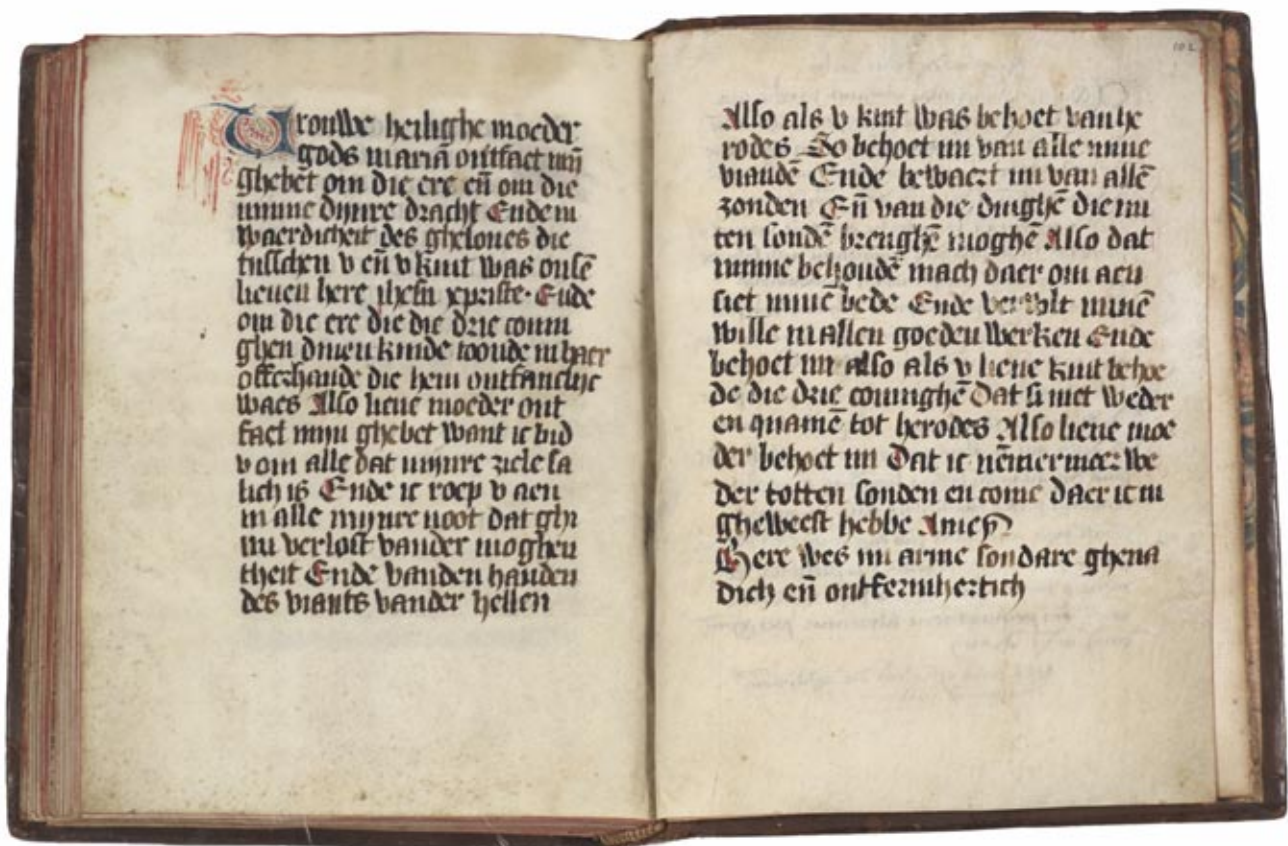 Vrouwe heilighe moeder
gods mariā ontfaet mijn
ghebet om die ere eñ om die
minne dijnre dracht Ende in
waerdicheit des ghelones die
tusschen v eñ v kint was onsē
lieuen here ihesu xpriste. Ende
om die ere die die drie conin
ghen dinen kinde woude in haer
offerhande die hem ontfanclijc
waes Also lieue moeder ont
faet mijn ghebet want ic bid
v om alle dat mijnre ziele sa
lich is Ende ic roep v aen
in alle mijnre noot dat ghi
mi verlost vander moghen
theit Ende vanden handen
des viants vander hellen
102
Also als v kint was behoet van he
rodes So behoet mi van alle mine
viandē Ende bewaert mi van allē
zonden Eñ van die dinghē die mi
ten sondē brenghē moghē Also dat
minne behoudē mach daer om aen
siet minē bede Ende vervolt minē
wille in allen goeden werken Ende
behoet mi also als v lieue kint behoe
de die drie coninghē Dat si niet weder
en quamē tot herodes Also lieue moe
der behoet mi Dat ic nēmermeer we
der totten sonden en come daer ic in
gheweest hebbe Amen
Here wes mi arme sondare ghena
dich eñ ontfermhertich